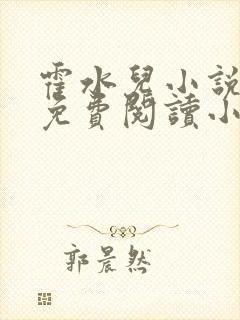 霍水兒小說
免費閱讀小
郭晨然